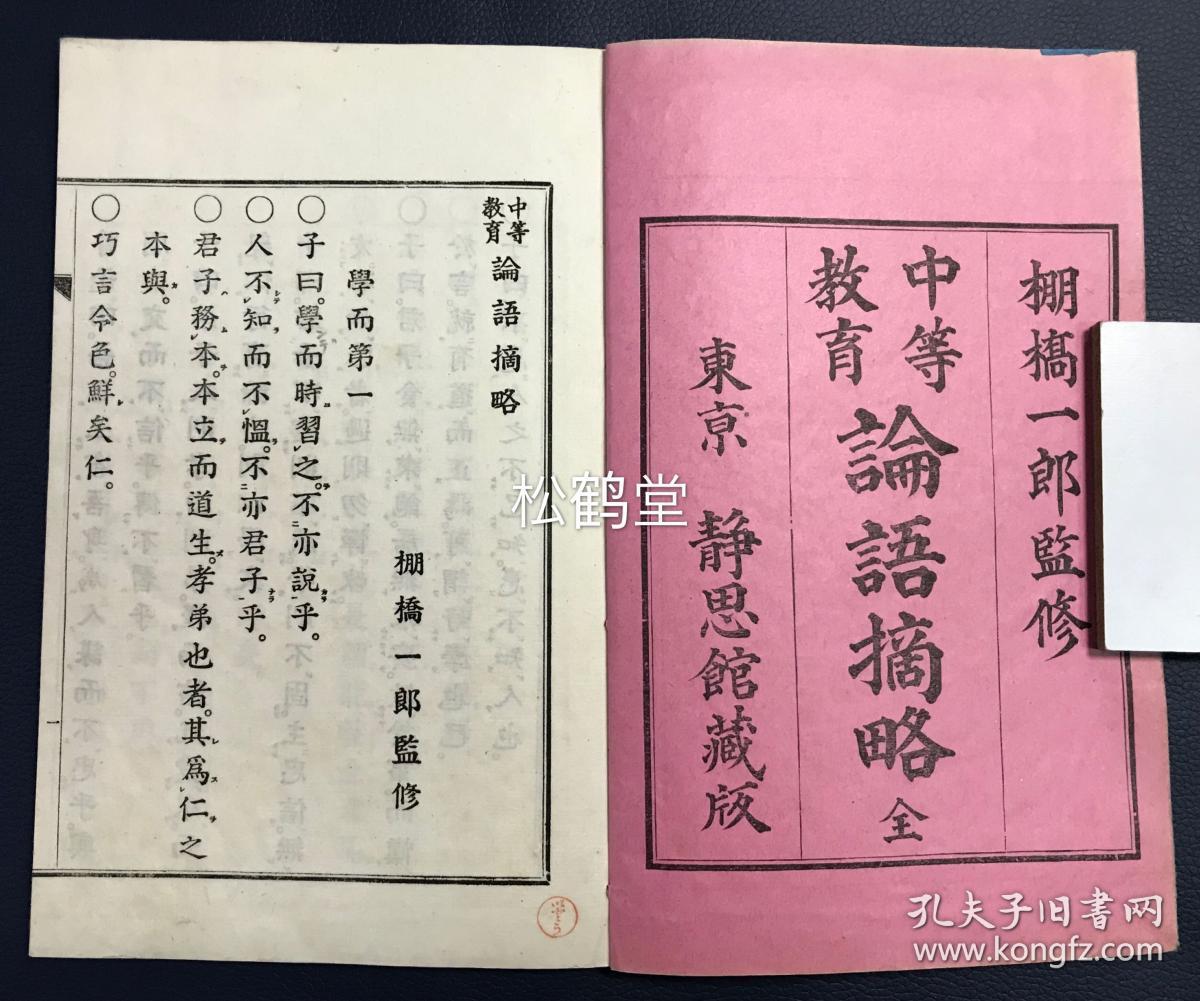 棚橋一郎監修
中等
教育
論語摘略 全
東京 靜思館藏版
中等
教育
論語摘略
棚橋一郎監修
學而第一
○子曰。學而時習之。不亦說乎。
○人不知而不慍。不亦君子乎。
○君子務本。本立而道生。孝弟也者。其爲仁之
本與。
○巧言令色。鮮矣仁。
一
松鹤堂
孔夫子旧书网
www.kongfz.com